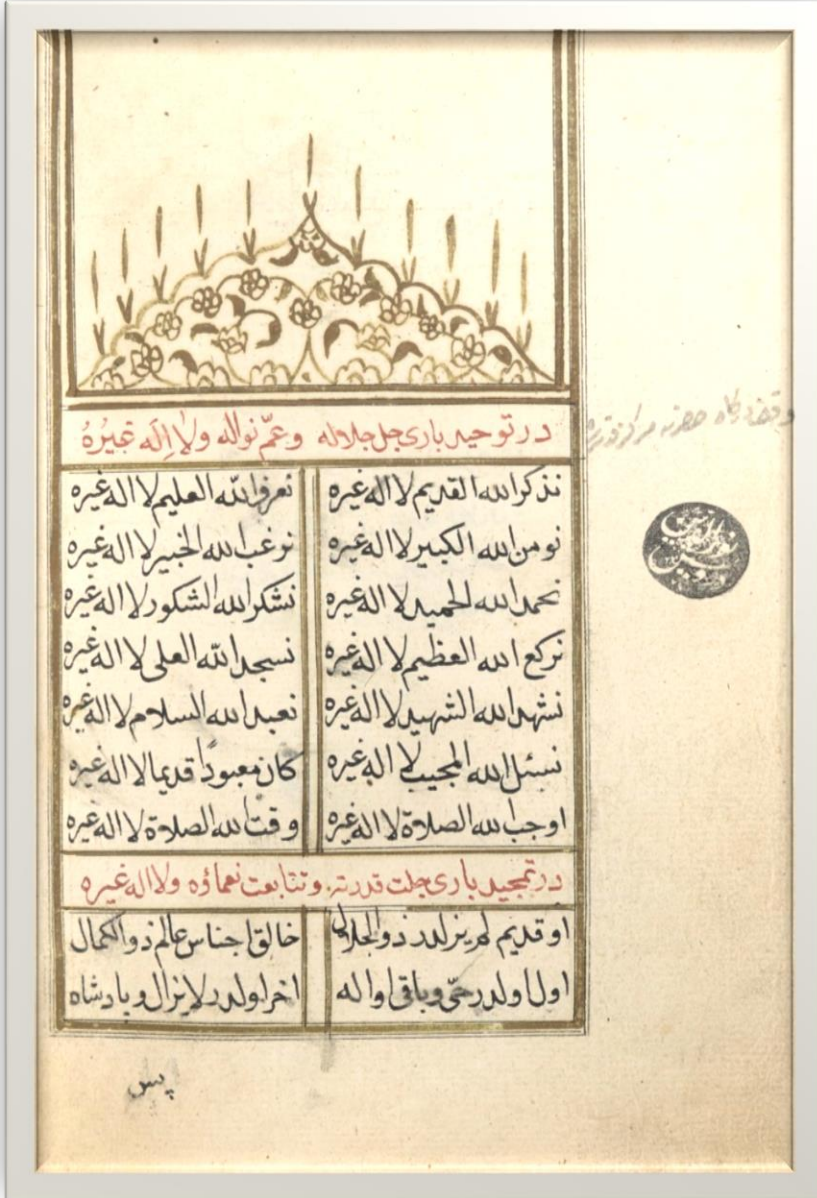 در توحید باری جل جلاله وعمّ نواله ولا اِلَه غیرُهُ
نذكر الله القدیم لا اله غیره نعرف الله العلیم لا اله غیره
نومن الله الكبیر لا اله غیره نوغب الله الخبیر لا اله غیره
نحمد الله الحمید لا اله غیره نشكر الله الشكور لا اله غیره
نركع الله العظیم لا اله غیره نسجد الله العلی لا اله غیره
نشهد الله الشهید لا اله غیره نعبد الله السلام لا اله غیره
نسئل الله المجیب لا اله غیره كان معبوداً قدیما لا اله غیره
اوجب الله الصلاة لا اله غیره وقت الله الصلاة لا اله غیره
در تمجید باری جلت قدرته وتتابعت نعماؤه ولا اله غیره
او قدیم لم یزلدر ذو الجلال خالق اجناس عالم ذو الكمال
اول اولدر حیّ و باقی اول اله اخر اولدر لایزال و پادشاه
پس